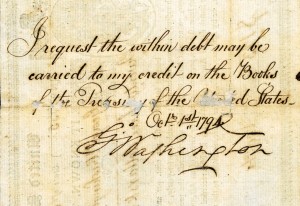 I request the within debt may be
carried to my credit on the Books
of the Treasury of the United States.
Octr. 1st 179
G:Washington